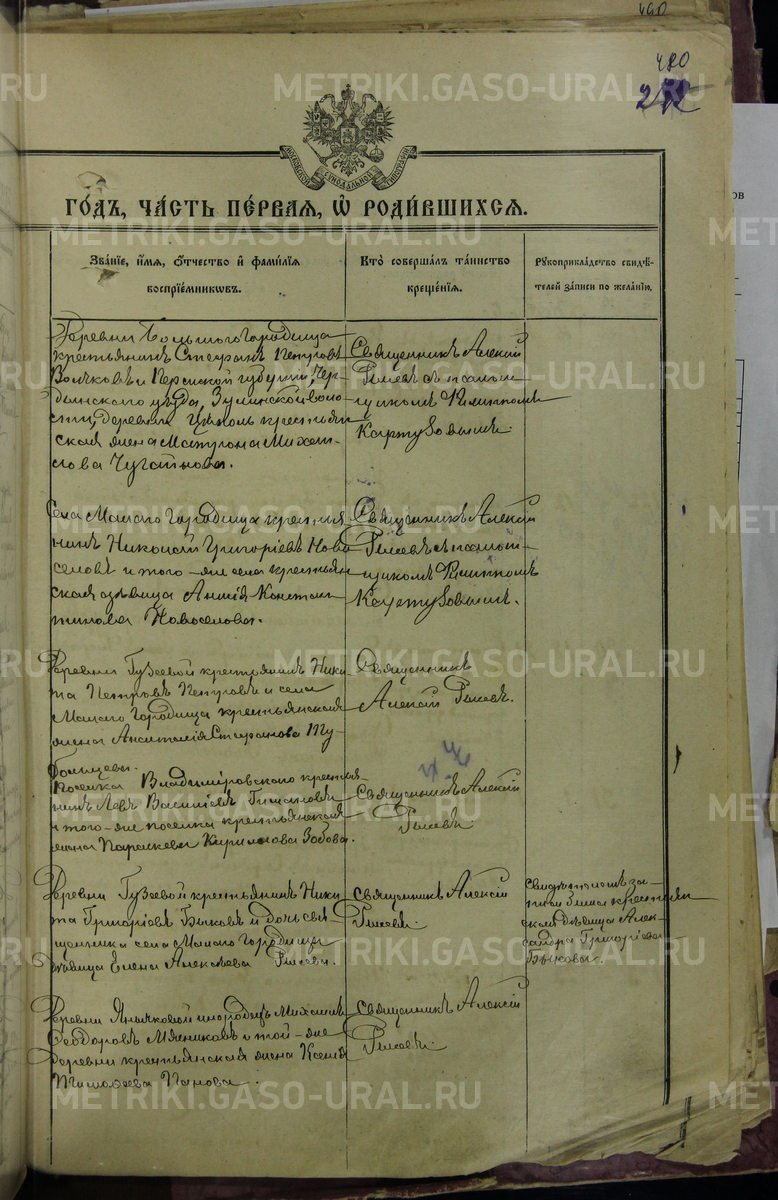 480
480
272
METRIKI.GASO-URAL.RU
МОСКОВСКОЙ СѴНОДАЛЬНОЙ ТИПОГРАФІИ
ГОДЪ, ЧАСТЬ ПЕРВАЯ, Ѿ РОДИВШИХСЯ.
Званіе, имя, отчество и фамилія
воспріемниковъ.
Кто совершалъ таинство
крещенія.
Рукоприкладство свидѣ-
телей записи по желанію.
Деревни Большого Городища
крестьянинъ Стефанъ Петровъ
Волковъ и Пермской губерніи, Чер-
дынскаго уѣзда, воло-
сти, деревни крестьян
ская жена Матрона Михаи-
лова
Священникъ Алексій
съ псалом
щикомъ Филиппомъ
Картузовымъ.
Села Малаго Городища крестья
нинъ Николай Григоріевъ Ново
селовъ и того-же села крестьян
ская дѣвица Анна Констан
тинова Новоселова.
Священникъ Алексій
съ псалом-
щикомъ Филиппомъ
Картузовымъ.
Деревни Гузеевой крестьянинъ Ники
та Петровъ Петровъ и села
Малаго Городища крестьянская
жена Анастасія Стефанова
Священникъ
Алексій
Поселка Владимировскаго крестья-
нинъ Левъ Василіевъ
и того-же поселка крестьянская
жена Параскева Кирилова Зобова.
Священникъ Алексій
Деревни Гузеевой крестьянинъ Ники
та Григоріевъ Быковъ и дочь свя
щенника села Малаго Городища
дѣвица Елена Алексѣева
Священникъ Алексій
крестьян
ская дѣвица Алек-
сандра Григоріева
Быкова.
Деревни Янычковой инородецъ Михаилъ
Ѳеодоровъ Мячниковъ и той-же
деревни крестьянская жена Ксенія
Тимоѳеева Панова.
Священникъ Алексій